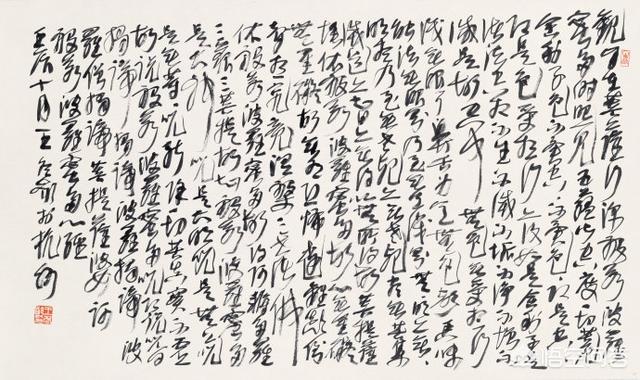 觀自在菩薩行深般若波羅
蜜多時照見五蘊皆空度一切苦厄
舍利子色不異空空不異色色即是空
空即是色受想行識亦復如是舍利子是
諸法空相不生不滅不垢不淨不增
不減是故空中無色無受想行
識無眼耳鼻舌身意無色聲香味
觸法無眼界乃至無意識界無無明亦無
無明盡乃至無老死亦無老死盡無苦集
滅道無智亦無得以無所得故菩提薩
埵依般若波羅蜜多故心無罣礙
無罣礙故無有恐怖遠離顛倒
夢想究竟涅槃三世諸佛
依般若波羅蜜多故得阿耨多羅
三藐三菩提故知般若波羅蜜多
是大神咒是大明咒是無上咒
是無等等咒能除一切苦真實不虛
故說般若波羅蜜多咒即說咒曰
揭諦揭諦波羅揭諦波
羅僧揭諦菩提薩婆訶
般若波羅蜜多心經
壬辰十月王冬齡於杭州
悟空问答